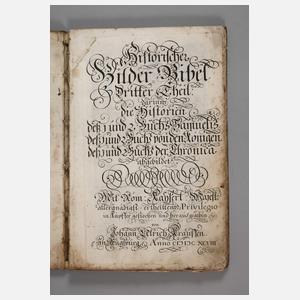 Historischer
Bilder Bibel
Dritter Theil.
darinnen
die Historien
deß 1 und 2 Buchs Samuelis
deß 1 und 2 Buch von den Königen
deß 1 und 2 Buchs der Chronica
abgebildet
Mit Röm. Kayserl. Majest.
allergnädigst ertheiltem Privilegio
in Kupffer gestochen und herausgegeben
von
Johann Ulrich Kraussen
in Augspurg Anno